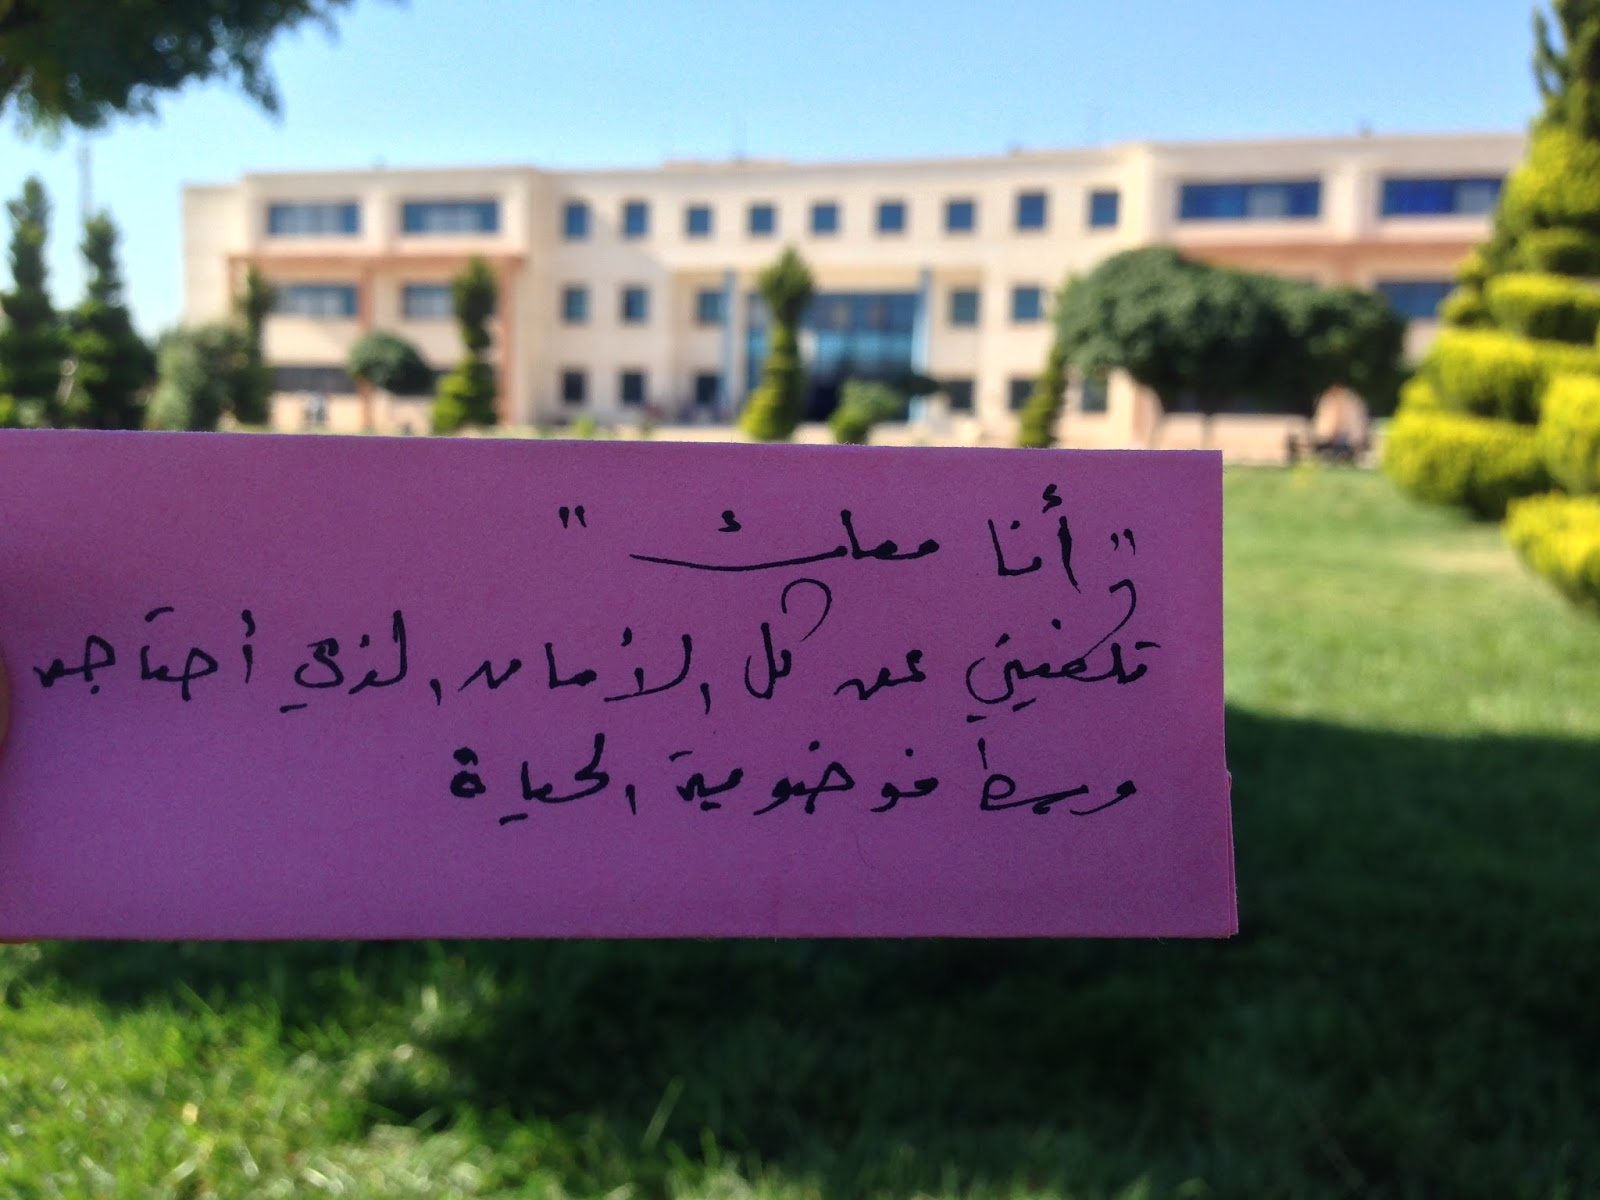 "أنا معك"
تكفيني عن كل الأمان الذي أحتاجه
وسط فوضوية الحياة